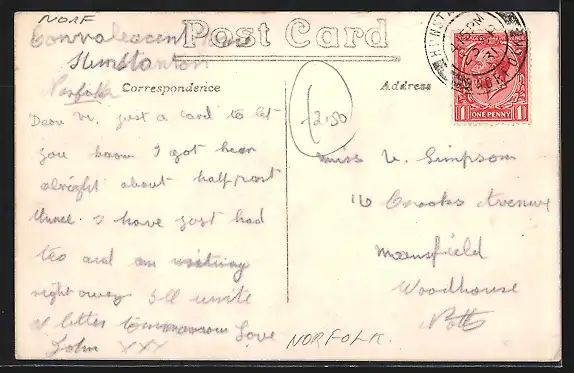 NORF
Convalescent Home
Hunstanton
Norfolk
Post Card
Correspondence
Address
POSTAGE
REVENUE
1 ONE PENNY 1
HUNSTANTON
NORFOLK
12.50
Dear V. just a card to let
you know I got here
alright about half past
three. I have just had
tea and am writing
right away I'll write
a letter tomorrow Love
John XXX
Miss V. Simpson
16 Crooks Avenue
Mansfield
Woodhouse
Notts
NORFOLK.